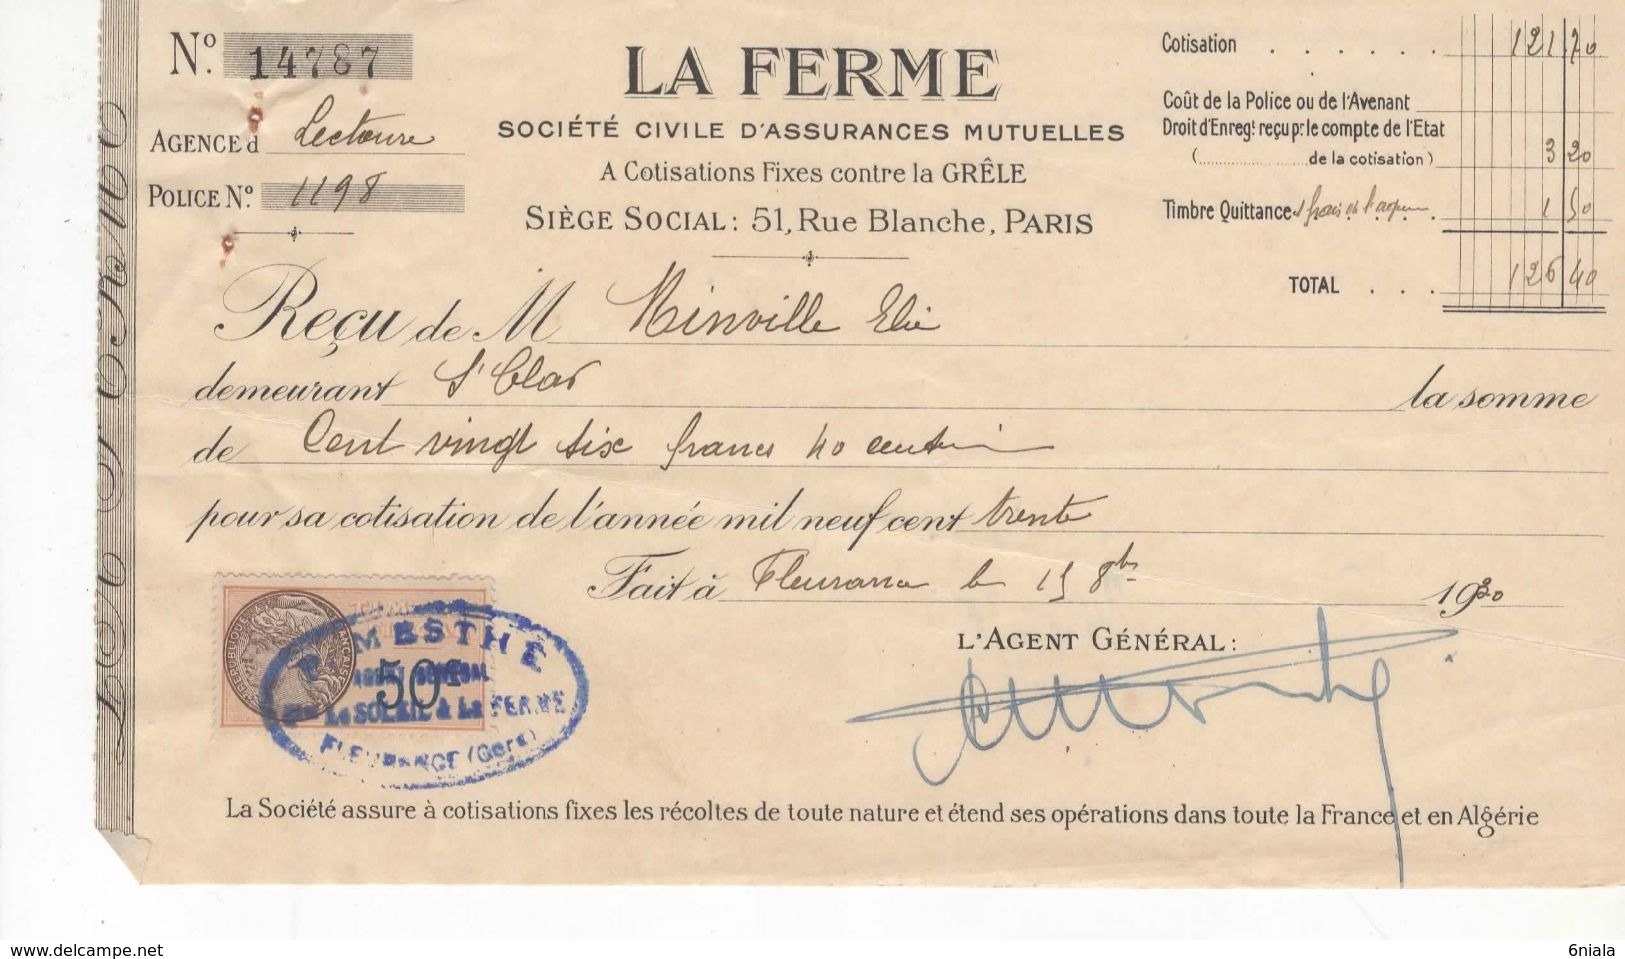 N.º 14787
AGENCE d Lectoure
POLICE N.º 1198
LA FERME
SOCIÉTÉ CIVILE D'ASSURANCES MUTUELLES
A COTISATIONS FIXES contre la GRÊLE
SIÈGE SOCIAL: 51, Rue Blanche, PARIS
Cotisation . . . . . . 121 70
Coût de la Police ou de l'Avenant
Droit d'Enregt reçu pr le compte de l'Etat
(..........de la cotisation) 3 20
Timbre Quittance et frais de l'agence 1 50
TOTAL . . . 126 40
Reçu de M Minville Elie
demeurant St Clar la somme
de Cent vingt six francs 40
pour sa cotisation de l'année mil neuf cent trente
Fait à Fleurance le 15 8bre 1930
L'AGENT GÉNÉRAL:
RÉPUBLIQUE FRANÇAISE
50c
MESTHÉ
AGENT GÉNÉRAL
Le SOLEIL & La FERME
FLEURANCE (Gers)
La Société assure à cotisations fixes les récoltes de toute nature et étend ses opérations dans toute la France et en Algérie
www.delcampe.net
6niala